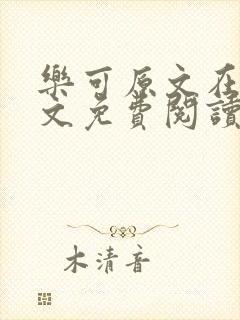 樂可原文在
文免費閱讀
木清音